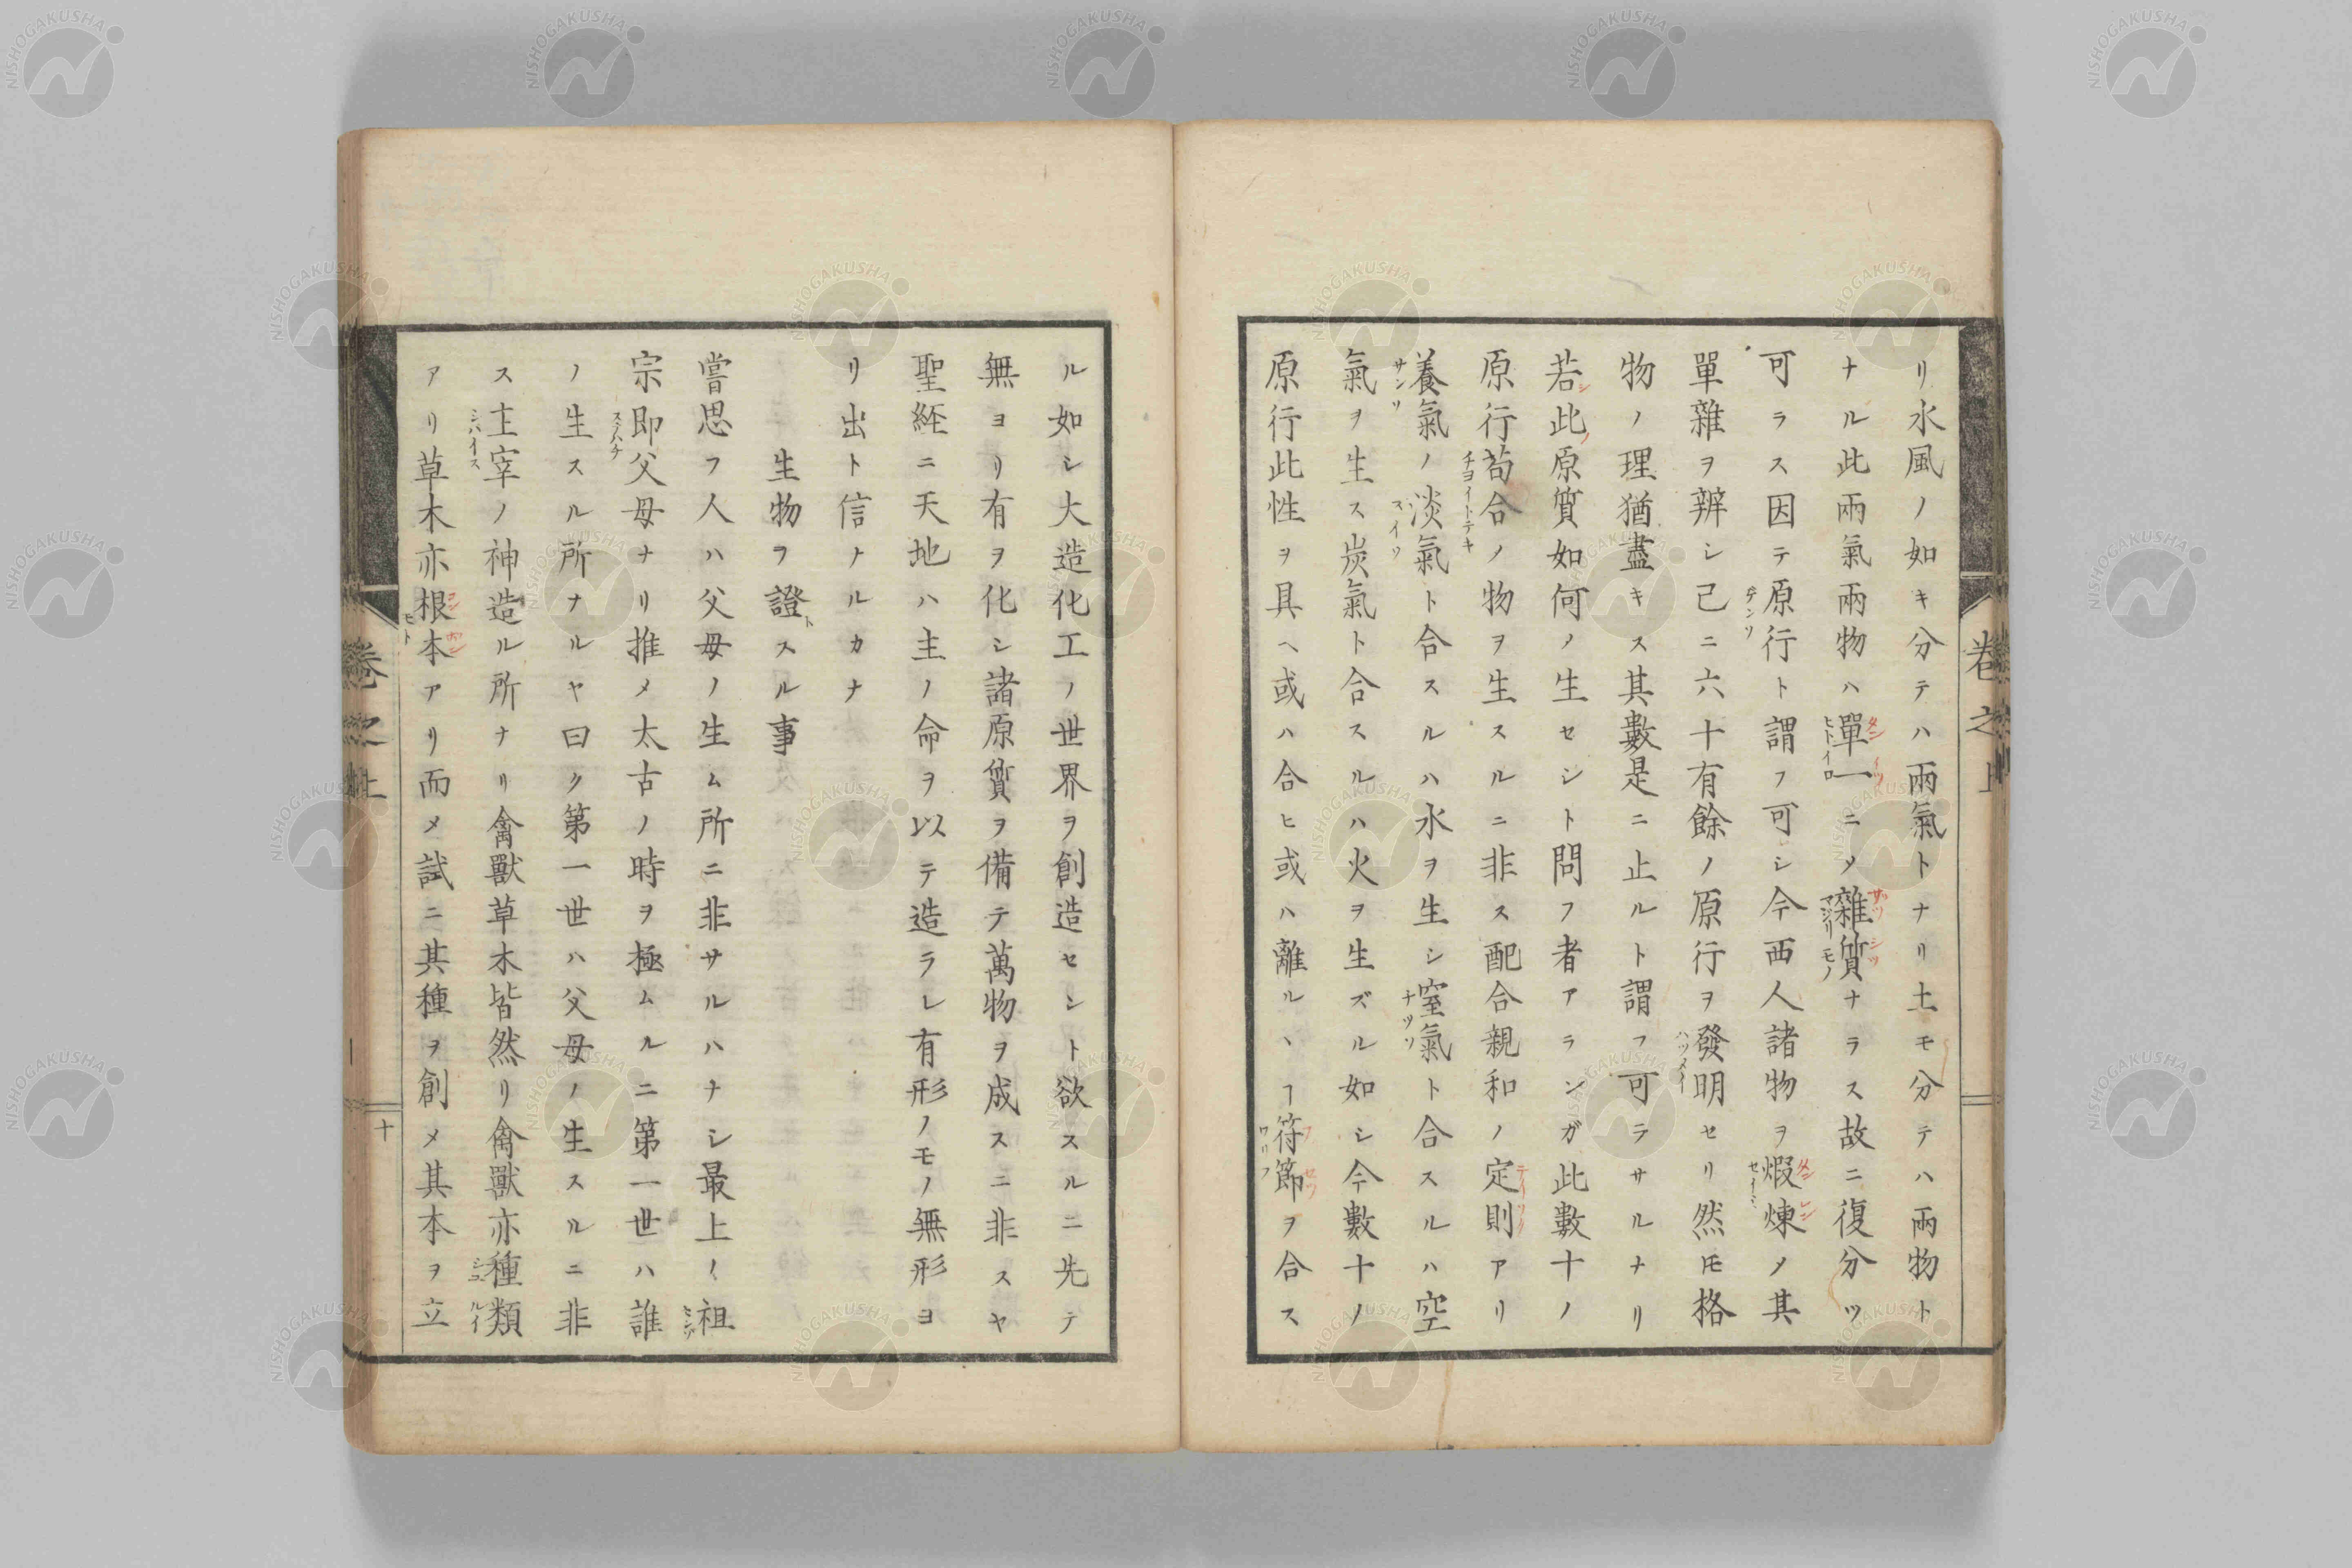 リ水風ノ如キ分テハ兩氣トナリ土モ分テハ兩物ト
ナル此兩氣兩物ハ單一ニメ雜質ナラス故ニ復分ツ
可ラス因テ原行ト謂フ可シ今西人諸物ヲ煆煉ノ其
單雜ヲ辨シ己ニ六十有餘ノ原行ヲ發明セリ然𪜈格
物ノ理猶盡キス其數是ニ止ルト謂フ可ラサルナリ
若此原質如何ノ生セシト問フ者アランガ此數十ノ
原行苟合ノ物ヲ生スルニ非ス配合親和ノ定則アリ
養氣ノ淡氣ト合スルハ水ヲ生シ窒氣ト合スルハ空
氣ヲ生ス炭氣ト合スルハ火ヲ生ズル如シ今數十ノ
原行此性ヲ具ヘ或ハ合ヒ或ハ離ルヽヿ符節ヲ合ス
ル如シ大造化工ノ世界ヲ創造セシト欲スルニ先テ
無ヨリ有ヲ化シ諸原質ヲ備テ萬物ヲ成スニ非スヤ
聖経ニ天地ハ主ノ命ヲ以テ造ラレ有形ノモノ無形ヨ
リ出ト信ナルカナ
生物ヲ證スル事
嘗思フ人ハ父母ノ生ム所ニ非サルハナシ最上ノ祖
宗即父母ナリ推メ太古ノ時ヲ極ムルニ第一世ハ誰
ノ生スル所ナルヤ曰ク第一世ハ父母ノ生スルニ非
ス主宰ノ神造ル所ナリ禽獸草木皆然リ禽獸亦種類
アリ草木亦根本アリ而メ試ニ其種ヲ創メ其本ヲ立
卷之上
卷之上
十
NISHOGAKUSHA